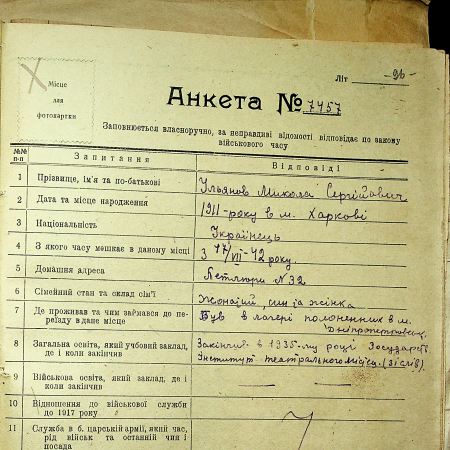 Літ -96-
Місце
для
фотокартки
Анкета № 7457
Заповнюється власноручно, за неправдиві відомості відповідає по закону
військового часу
№№ п-п Запитання Відповіді
1 Прізвище, ім'я та по-батькові Ульянов Микола Сергійович
2 Дата та місце народження 1911-року в м. Харкові
3 Національність Українець
4 З якого часу мешкає в даному місці З 17/VII-42 року.
5 Домашня адреса Петлюри № 32
6 Сімейний стан та склад сім'ї Жонатий, син та жінка
7 Де проживав та чим займався до пе-
реїзду в дане місце
Був в лагері полоненних в м.
Дніпропетровськ.
8 Загальна освіта, який учбовий заклад,
де і коли закінчив
Закінчив в 1935-му році
Інститут театрального
9 Військова освіта, який заклад, де і
коли закінчив
10 Відношення до військової служби
до 1917 року
11 Служба в б. царській армії, який час,
рід військ та останній чин і
посада